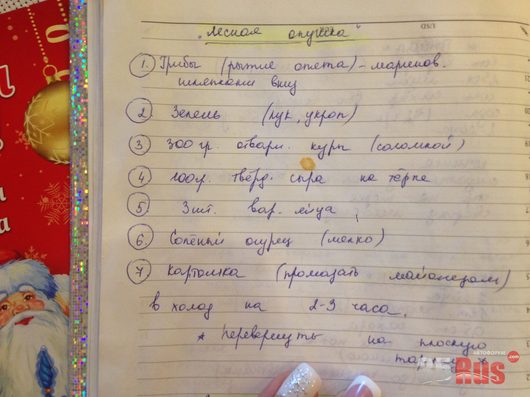 "Лесная опушка"
1. Грибы (рыжие опята) - маринов.
шляпками вниз
2 Зелень (лук, укроп)
3 300 гр. отварн. куры (соломкой)
4 100гр. тверд. сыра на терке
5 3шт. вар. яйца
6 Соленый огурец (мелко)
7 Картошка (промазать майонезом)
в холод на 2-3 часа.
* перевернуть на плоскую
тарелку *
АВТОФОРУМ
Rus